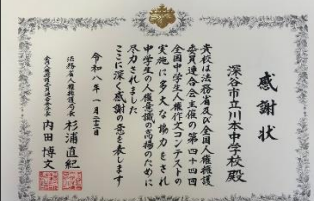 感謝状
深谷市立川本中学校殿
貴校は法務省及び全国人権擁護
委員連合会主催の第四十四回
全国中学生人権作文コンテストの
実施に多大な協力をされ
中学生の人権意識の高揚のために
尽力されました
ここに深く感謝の意を表します
令和八年一月二十三日
法務省人権擁護局長 杉浦直紀
全国人権擁護委員連合会長 内田博文